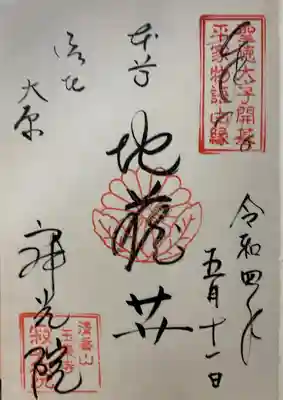 聖徳太子開基
平家物語由縁
令和四年
五月十一日
本尊
地蔵𦬇
洛北
大原
寂光院
清香山
玉泉寺